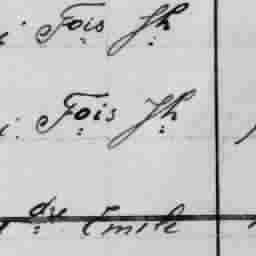 Fois Jh
Fois Jh
dre Emile